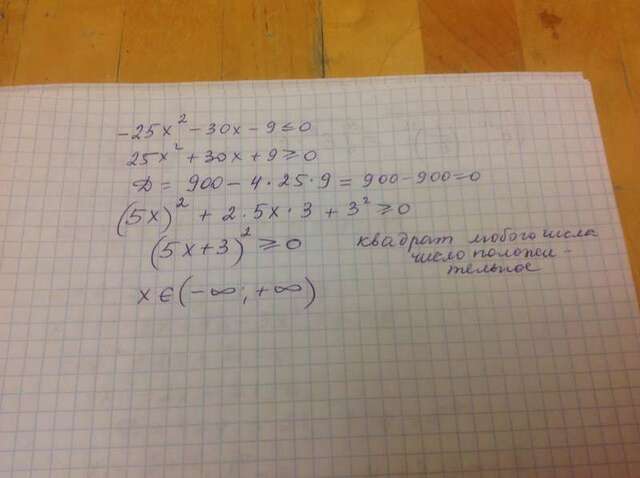 -25x² - 30x - 9 ≤ 0
25x² + 30x + 9 ≥ 0
D = 900 - 4 · 25 · 9 = 900 - 900 = 0
(5x)² + 2 · 5x · 3 + 3² ≥ 0
(5x+3)² ≥ 0
квадрат любого числа
число положи -
тельное
x ∈ (-∞; +∞)